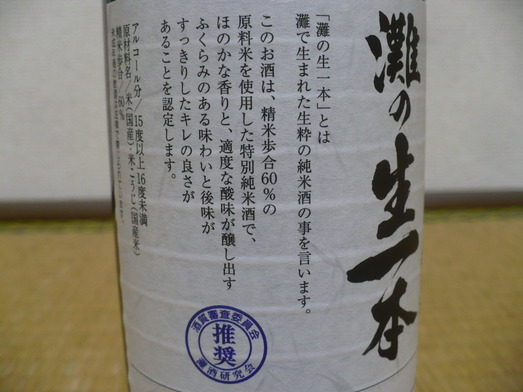 灘の生一本
「灘の生一本」とは
灘で生まれた生粋の純米酒の事を言います。
このお酒は、精米歩合60%の
原料米を使用した特別純米酒で、
ほのかな香りと、適度な酸味が醸し出す
ふくらみのある味わいと後味が
すっきりしたキレの良さが
あることを認定します。
アルコール分/15度以上16度未満
原材料名/米(国産)・米こうじ(国産米)
精米歩合/60%
酒質審査委員会
推奨
灘酒研究会